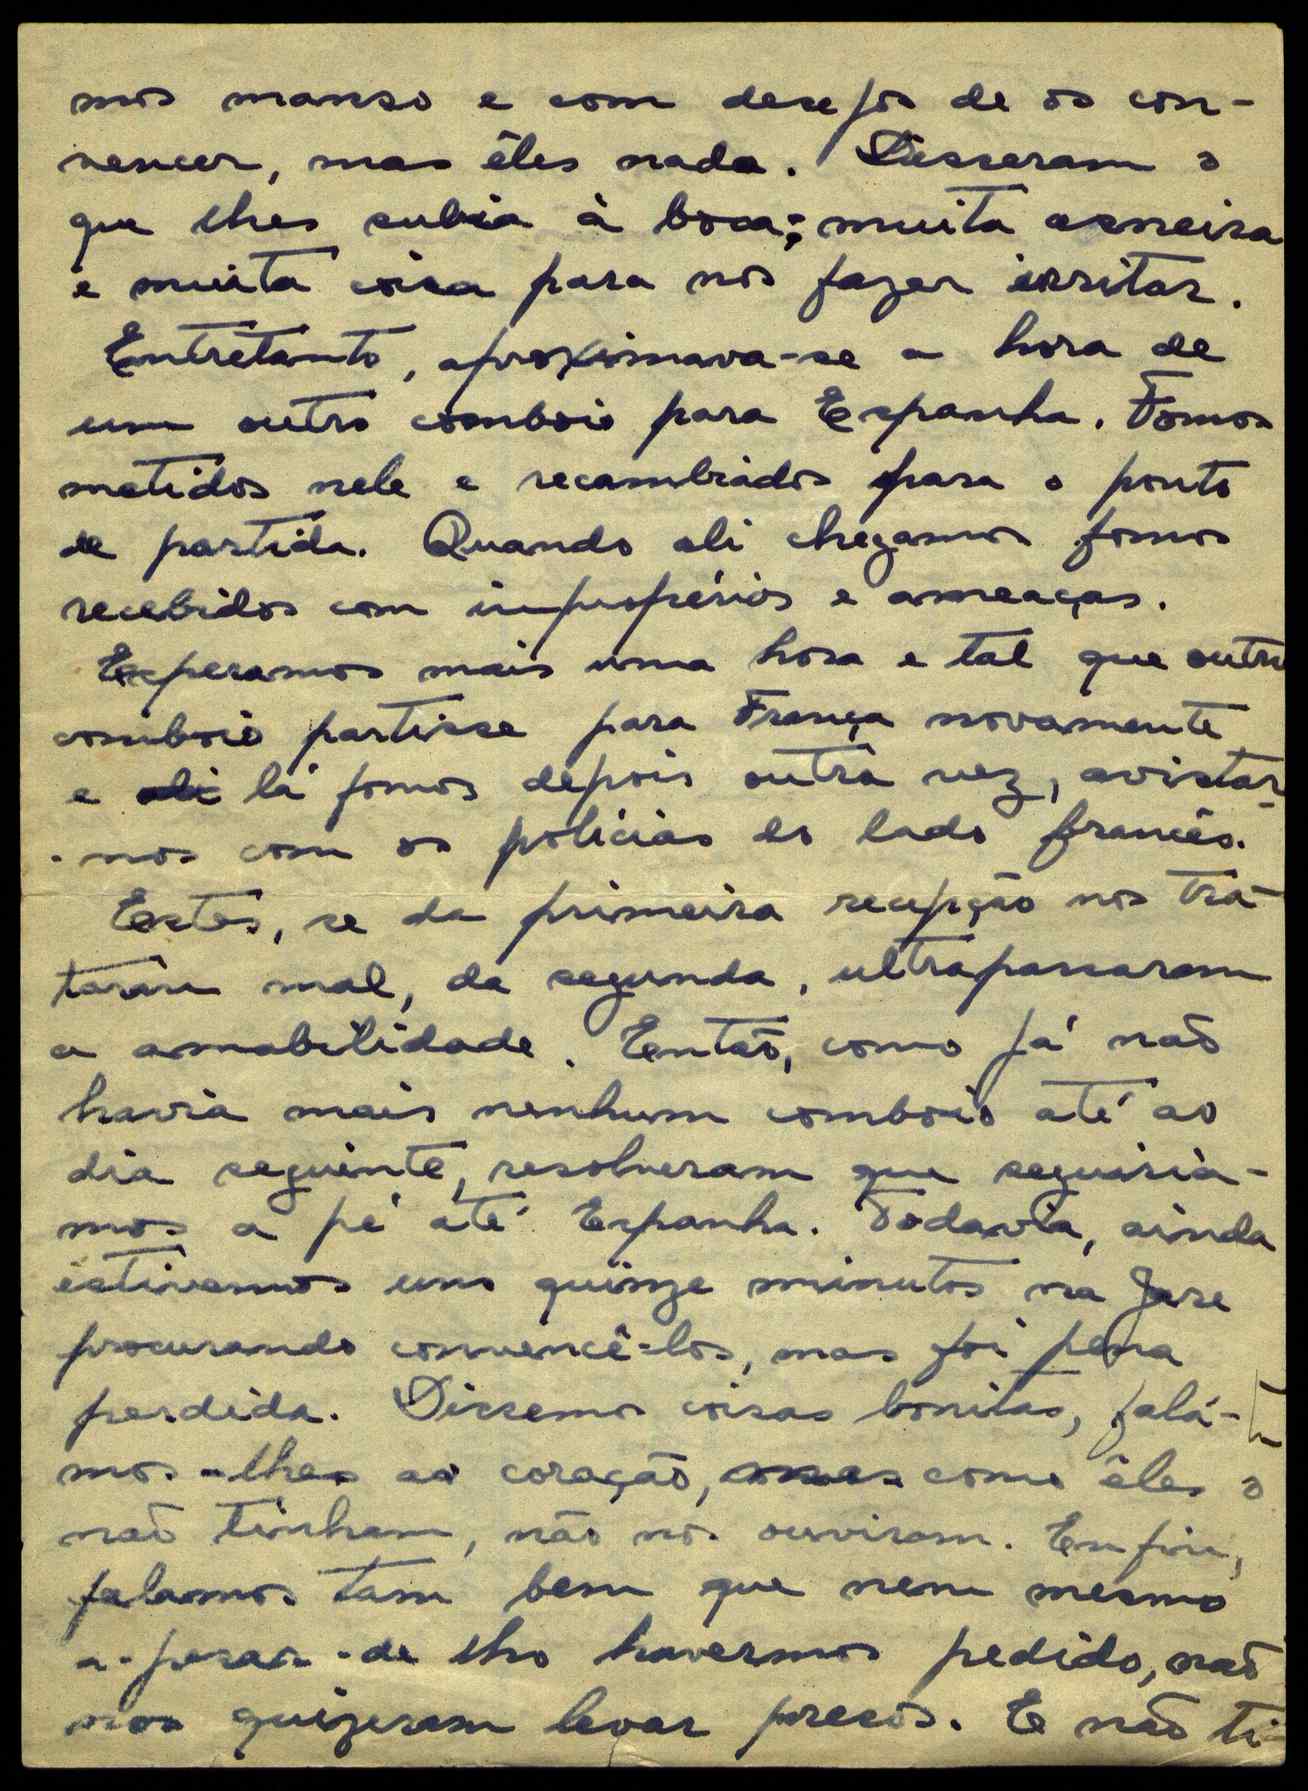 mos manso e com desejos de os con-
vencer, mas êles nada. Disseram o
que lhes subia à boca; muita asneira
e muita coisa para nos fazer irritar.
Entretanto, aproximava-se a hora de
um outro comboio para Espanha. Fomos
metidos nele e recambiados para o ponto
de partida. Quando ali chegamos fomos
recebidos com impropérios e ameaças.
Esperamos mais uma hora e tal que outro
comboio partisse para França novamente
e ali lá fomos depois outra vez, avistar-
-nos com os polícias do lado francês.
Estes, se da primeira recepção nos tra-
taram mal, da segunda, ultrapassaram
a amabilidade. Então, como já não
havia mais nenhum comboio até ao
dia seguinte, resolveram que seguiría-
mos a pé até Espanha. Todavia, ainda
estivemos uns quinze minutos na Gare
procurando convencê-los, mas foi pena
perdida. Dissemos coisas bonitas, falá-
mos-lhes ao coração, como êles o
não tinham, não nos ouviram. Enfim,
falamos tam bem que nem mesmo
a-pesar-de lho havermos pedido, não
nos quizeram levar presos. E não ti-